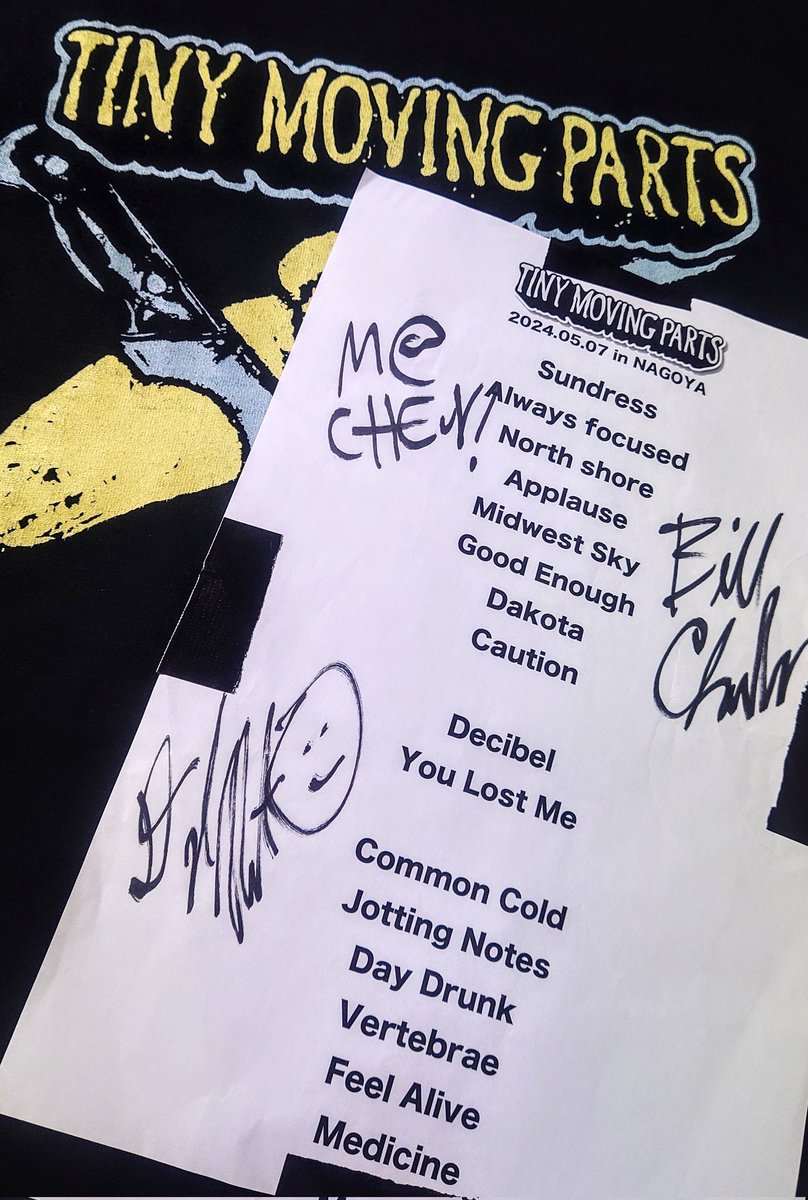 TINY MOVING PARTS
TINY MOVING PARTS
2024.05.07 in NAGOYA
Sundress
Always focused
North shore
Applause
Midwest Sky
Good Enough
Dakota
Caution
Decibel
You Lost Me
Common Cold
Jotting Notes
Day Drunk
Vertebrae
Feel Alive
Medicine
Bill